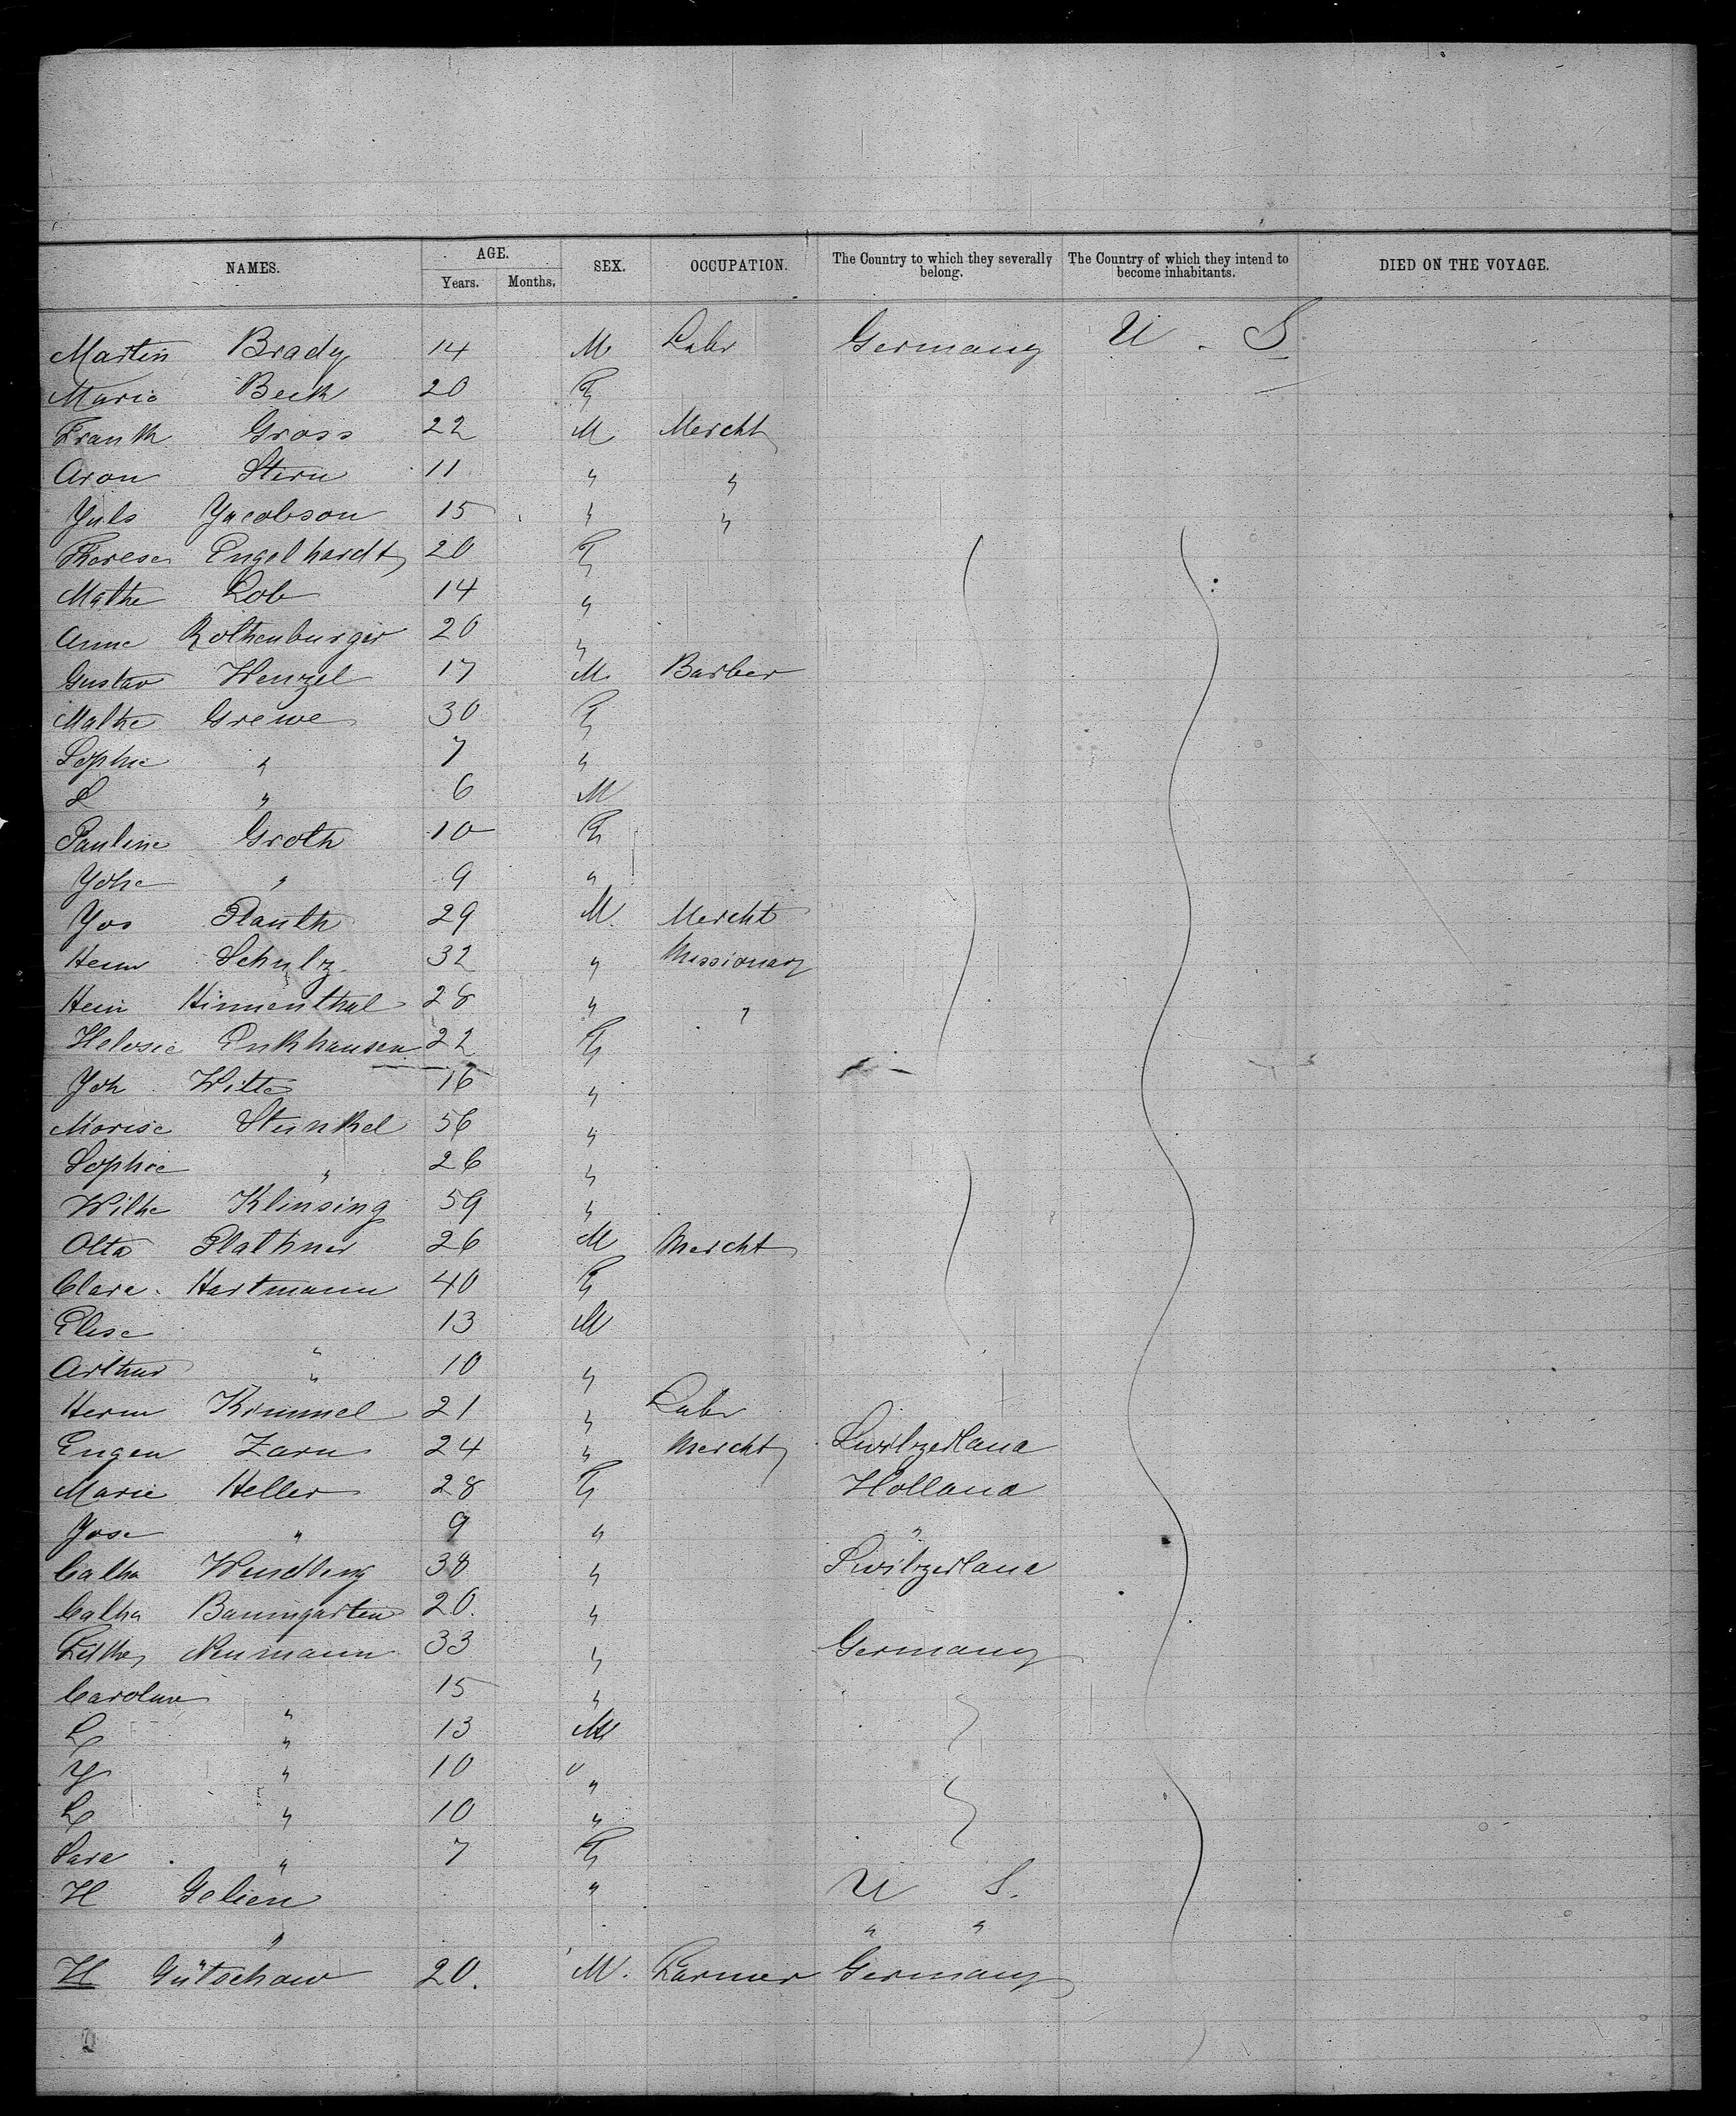 NAMES. AGE. SEX. OCCUPATION. The Country to which they severally belong. The Country of which they intend to become inhabitants. DIED ON THE VOYAGE.
Years. Months.
Martin Brady 14 M Labr Germany U. S
Marie Beck 20 F
Frank Gross 22 M Mercht
Aron Stern 11 " "
Juls Jacobson 15 " "
Therese Engelhardt 20 F
Mathe Lob 14 "
Anne Rothenburger 20 "
Gustav Henzel 17 M Barber
Malke Grewe 30 F
Sophie " 7 "
L " 6 M
Pauline Groth 10 F
Johe " 9 "
Jos Plauth 29 M. Mercht
Herm Schulz 32 " Missionary
Hein Himmenthal 28 " "
Heloise Enkhausen 22 F
Joh Witte 16 "
Morise Stunkel 56 "
Sophie " 26 "
Wilhe Klinsing 59 "
Otto Plathner 26 M Mercht
Clara Hartmann 40 F
Elise " 13 M
Arthur " 10 "
Herm Kimmel 21 " Labr
Eugen Zarn 24 " Mercht Switzerland
Marie Heller 28 F Holland
Jose " 9 " "
Catha Wendberg 38 " Switzerland
Catha Baumgarten 20. "
Neumann 33 " Germany
Caroline " 15 "
L " 13 M
J " 10 "
L " 10 "
Sara " 7 F
H Gelien " U S.
" " "
H Gütschow 20. M. Farmer Germany